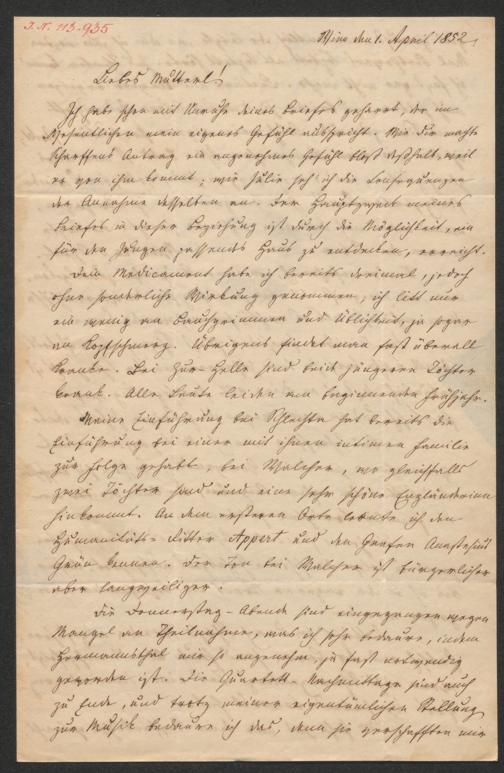 J.N. 113.935
Wien den 1. April 1852
Liebes Mutterl!
Ich habe schon mit Unruhe deines Briefes geharrt, der im
Wesentlichen mein eigenes Gefühl ausspricht. Mir machte
Antrag ein angenehmes Gefühl bloß deßhalb, weil
er von ihm kommt; wie Julie seh' ich die Consequenzen
der Annahme desselben an. Der Hauptzweck meines
Briefes in dieser Beziehung ist durch die Möglichkeit, ein
für den Jungen passendes Haus zu entdecken, erreicht.
Dein Medicament habe ich bereits dreimal, jedoch
ohne sonderliche Wirkung genommen, ich litt nur
ein wenig an Bauchgrimmen und Üblichkeit, ja sogar
an Kopfschmerz. Übrigens findet man fast überall
Kranke. Bei Zur-Helle sind beide jüngeren Töchter
krank. Alle Leute leiden am beginnenden Frühjahr.
Meine Einführung bei Schlechta hat bereits die
Einführung bei einer mit ihnen intimen Familie
zur Folge gehabt, bei Malcher, wo gleichfalls
zwei Töchter sind und eine sehr schöne Engländerinn
hinkommt. An dem ersteren Orte lernte ich den
Humanitäts-Ritter Appert und den Grafen Anastasius
Grün kennen. Der Ton bei Malcher ist bürgerlicher
aber langweiliger.
Die Donnerstag-Abende sind eingegangen wegen
Mangel an Theilnahme, was ich sehr bedaure, indem
Hermannsthal mir so angenehm, ja fast nothwendig
geworden ist. Die Quartett-Nachmittage sind auch
zu Ende, und trotz meiner eigenthümlichen Stellung
zur Musik bedaure ich das, denn sie verschafften mir